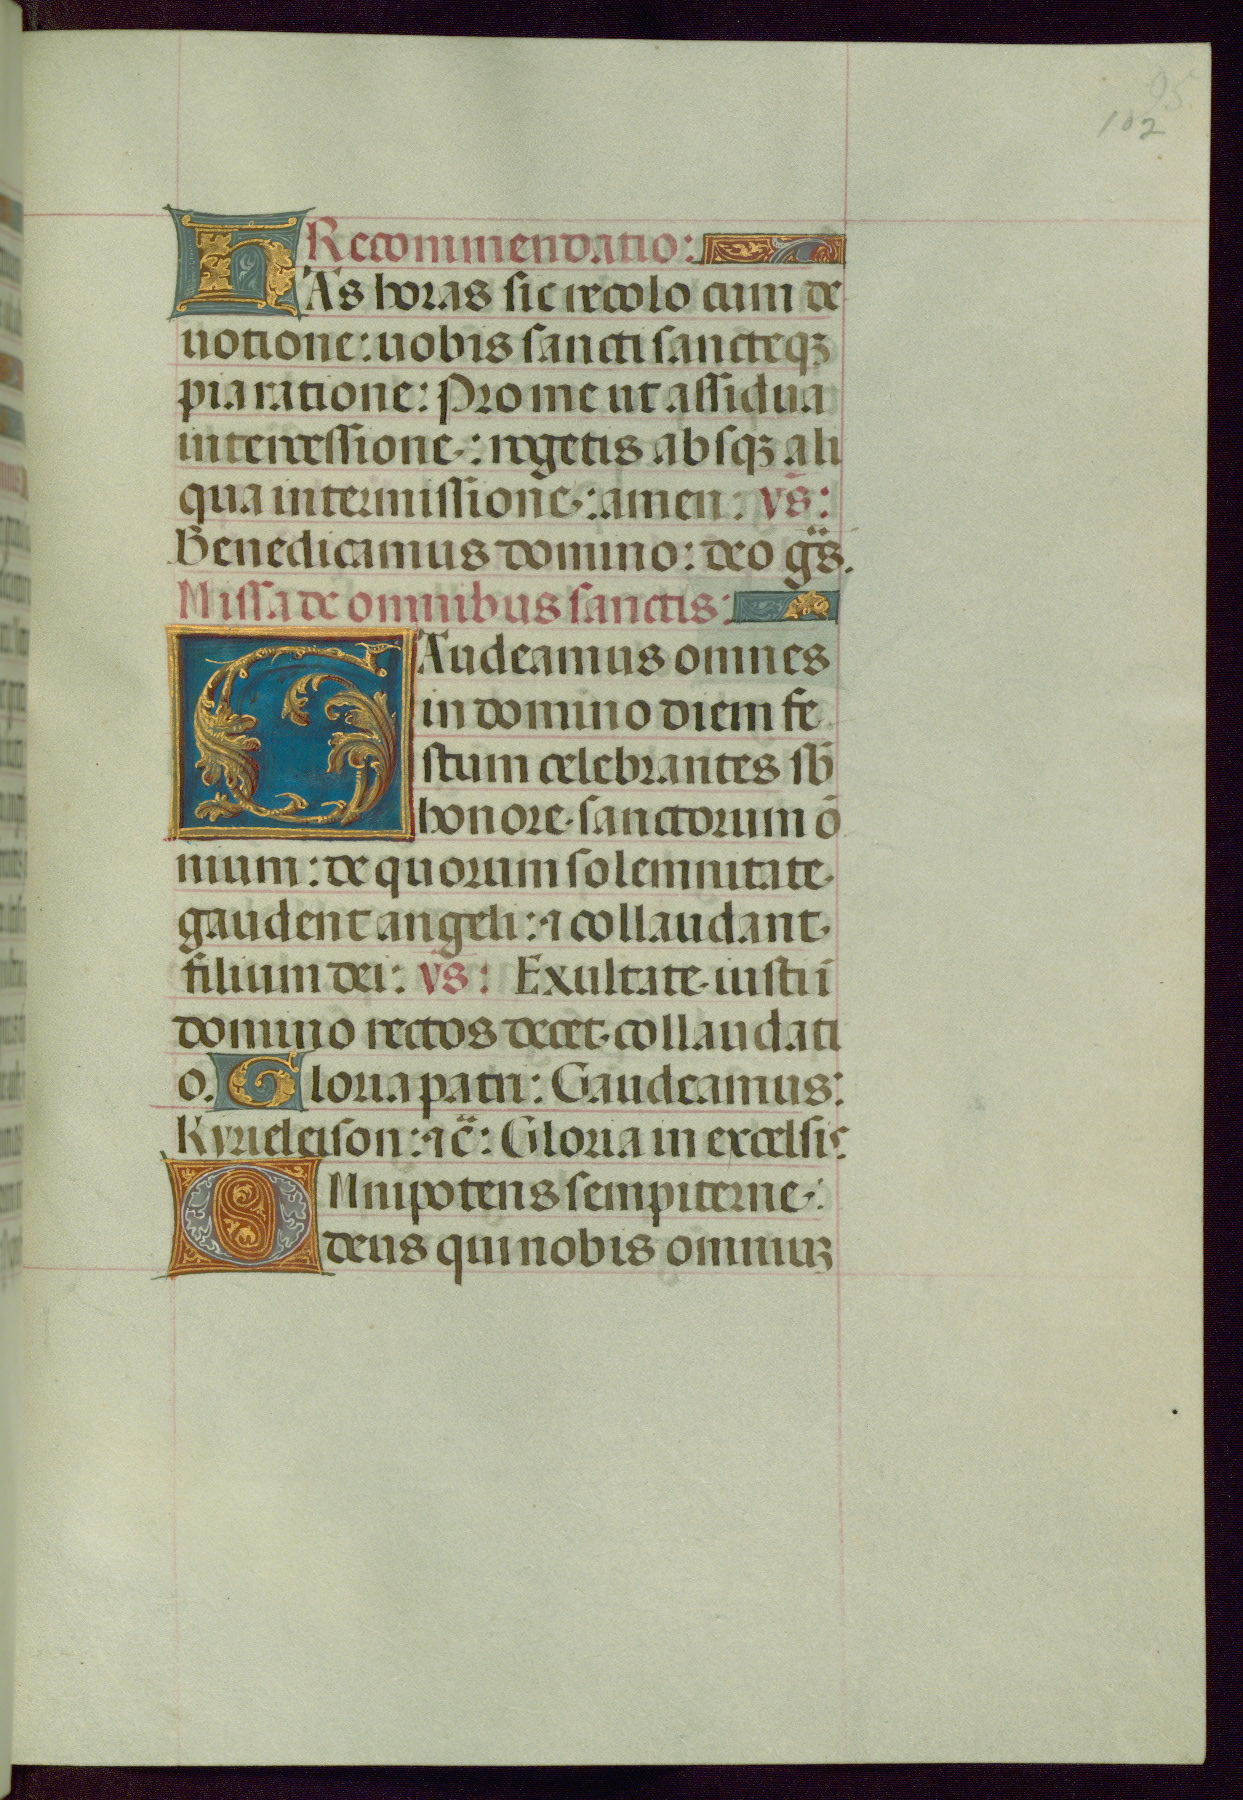 95
102
Recommendatio:
HAs horas sic recolo cum de
uotione: uobis sancti sancteqꝫ
pia ratione: Pro me ut assidua
intercessione: regetis absqꝫ ali
qua intermissione: amen: vs̄:
Benedicamus domino: deo gr̄s.
Missa de omnibus sanctis:
GAudeamus omnes
in domino diem fe
stum celebrantes sb̄
honore sanctorum ō
nium: de quorum solemnitate
gaudent angeli: ⁊ collaudant
filium dei: vs̄: Exultate iusti ī
domino rectos decet collaudati
o. Gloria patri: Gaudeamus:
Kyrieleison: ⁊ c̄: Gloria in excelsis:
OMnipotens sempiterne:
deus qui nobis omniuꝫ